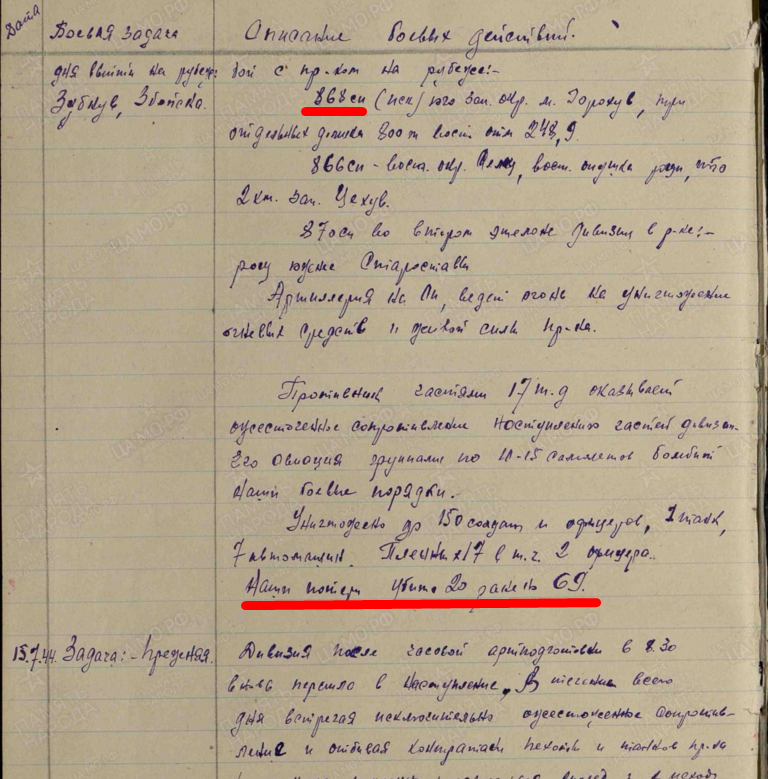 Дата
Боевая задача
Описание боевых действий.
дня выйти на рубеж:
Зубкув, Збоиска.
бой с пр-ком на рубеже:-
868сп (иск) юго зап. окр. м. Горохув, при
отдельных домика 800 м вост. отм 248,9.
866сп - вост. окр. вост. опушка рощи, что
2 км. зап. Цехув.
870сп во втором эшелоне дивизии в р-не:-
рощу южнее Староставы
Артиллерия на ОП, ведет огонь на уничтожение
огневых средств и живой силы пр-ка.
Противник частями 17 т.д оказывает
ожесточенное сопротивление наступлению частей дивизии.
Его авиация группами по 10-15 самолетов бомбит
наши боевые порядки.
Уничтожено до 150 солдат и офицеров, 1 танк,
7 автомашин. Пленных 17 в т.ч. 2 офицера.
Наши потери убито 20 ранено 69.
15.7.44. Задача:- прежняя.
Дивизия после часовой артподготовки в 8.30
вновь перешла в наступление. В течении всего
дня встречая исключительно ожесточенное сопротив-
ление и отбивая контратаки пехоты и танков пр-ка
ЦАМО.РФ
ПАМЯТЬ НАРОДА